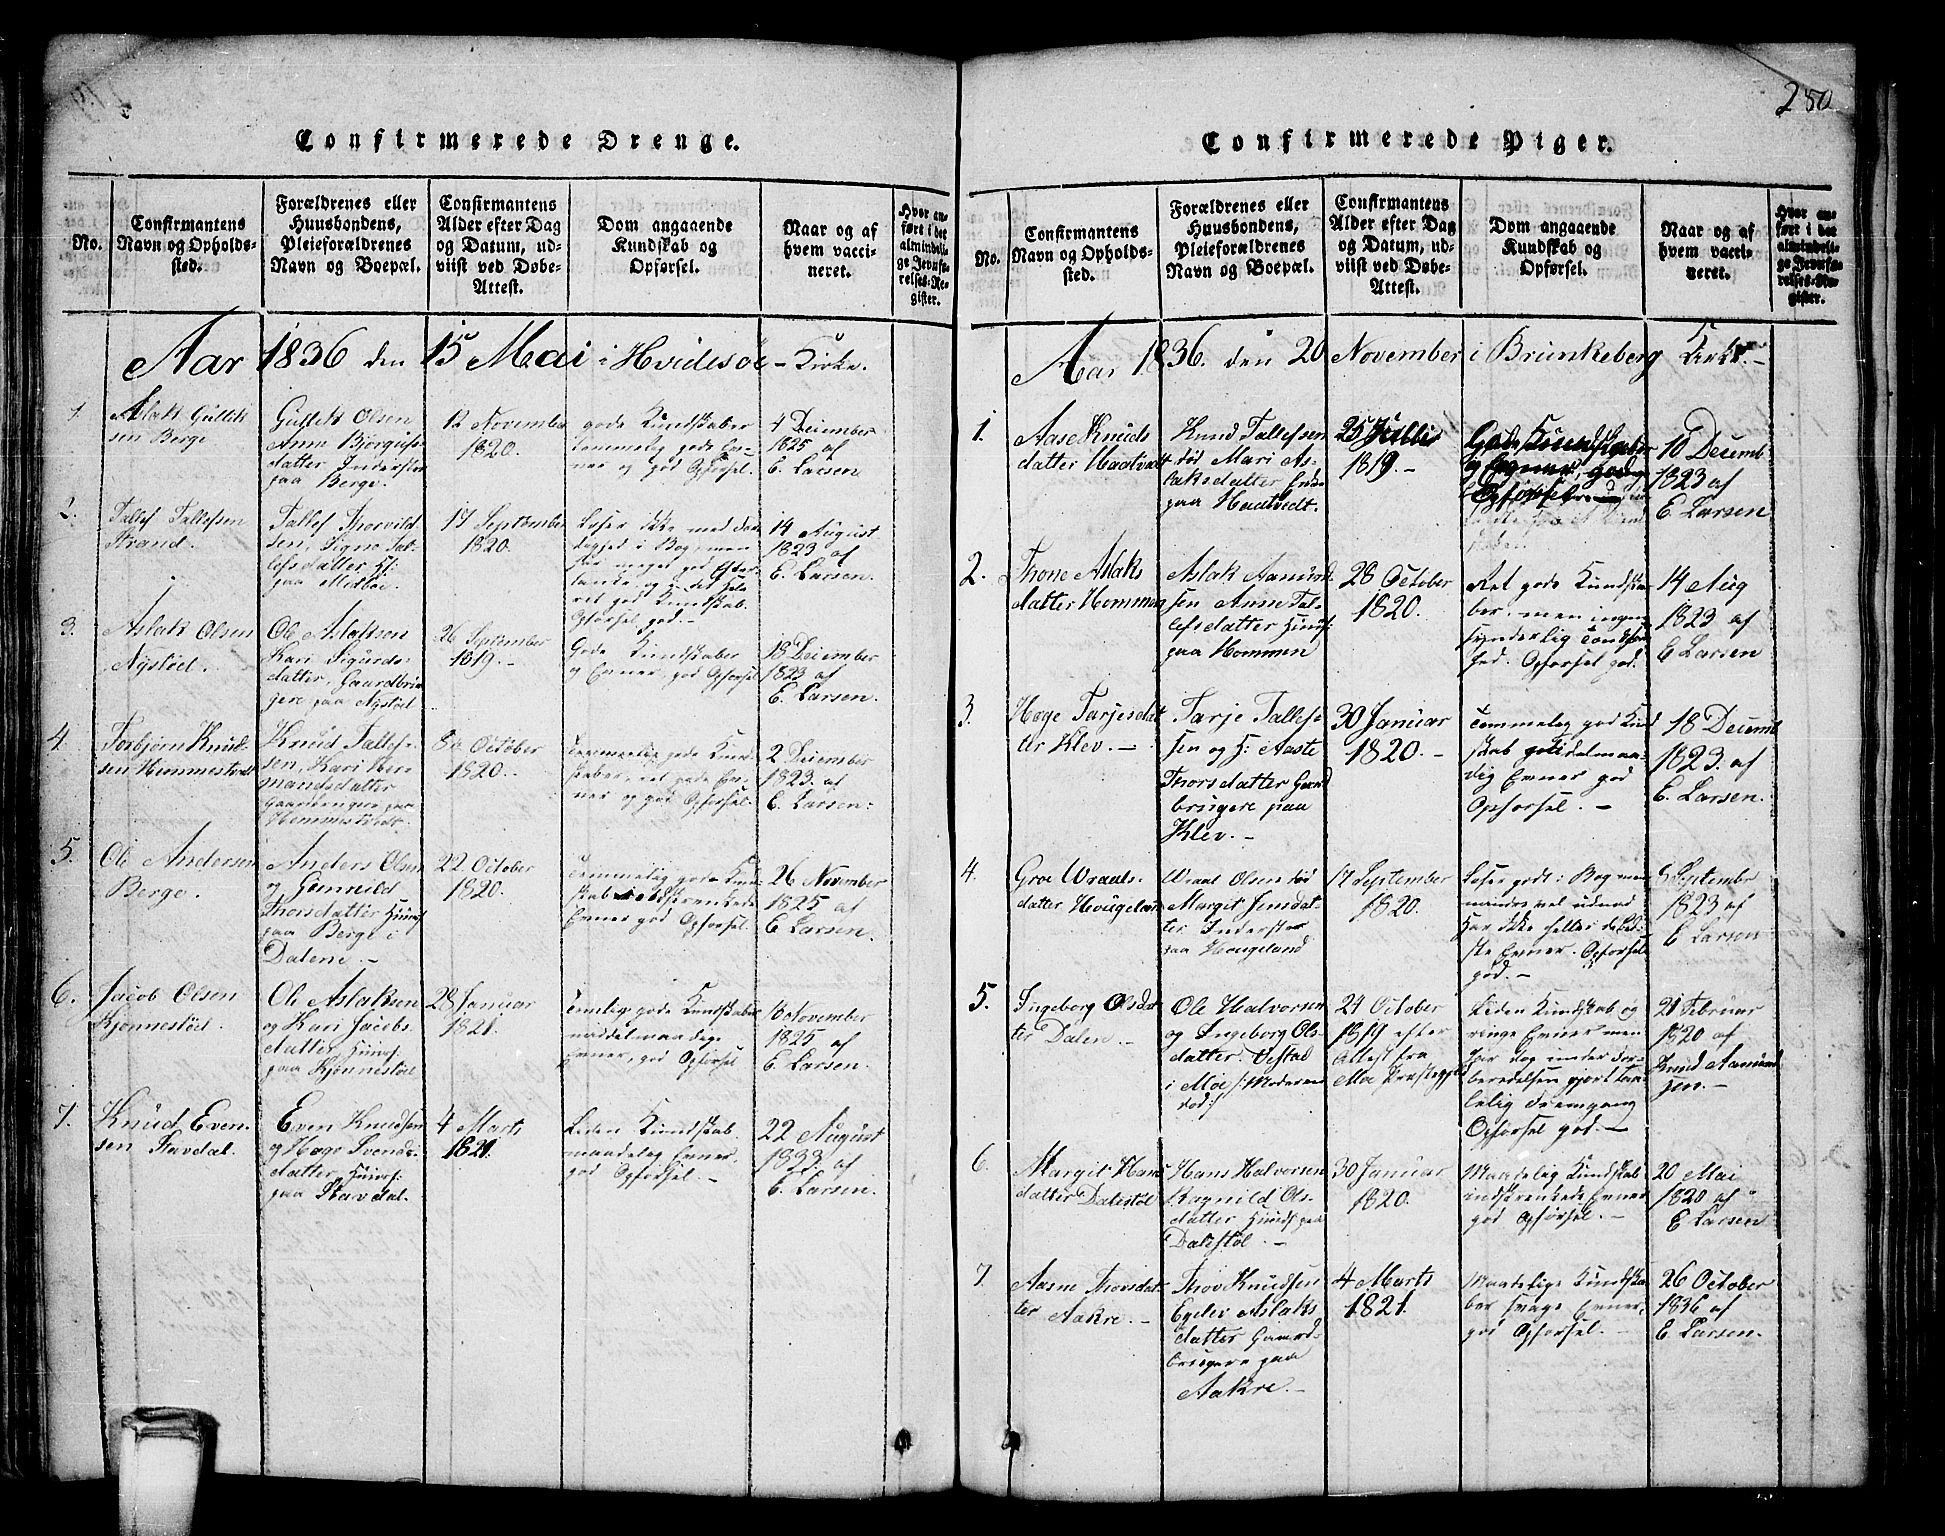 280
Confirmerede Drenge.
No.
Confirmantens
Navn og Opholds-
sted.
Forældrenes eller
Huusbondens,
Pleieforældrenes
Navn og Boepæl.
Confirmantens
Alder efter Dag
og Datum, ud-
viist ved Døbe-
Attest.
Dom angaaende
Kundskab og
Opførsel.
Naar og af
hvem vacci-
neret.
Hvor an-
ført i det
almindeli-
ge Jevnfø-
relses-Re-
gister.
Aar 1836 den 15 Mai i Hvidesøe - Kirke.
1.
Aslak Gullik
sen Berge
Gullik Olsen
Anne Bjorgulfs
datter Inderster
paa Berge.
12 November
1820.
gode Kundskaber
temmelig gode Ev-
ner og god Opførsel
4 December
1825 af
E. Larsen
2.
Tallef Tallefsen
Strand.
Tallef Thorvild
sen, Signe Tal-
lefsdatter H:
paa Midbøe
17 September
1820.
Læser ikke med
i Bog, men
har meget god
og i det Hele
ret god Kundskab.
Opførsel god. -
14 August
1823 af
E. Larsen.
3.
Aslak Olsen
Nystøel.
Ole Aslaksen
Kari Sigurds-
datter, Gaardbru-
gere paa Nystøel
26 September
1819. -
Gode Kundskaber
og Evner, god Opførsel
18 December
1823 af
E. Larsen.
4.
Torbjørn Knud-
sen Hemmestvedt
Knud Tallef-
sen, Kari Her-
mandsdatter
Gaardbrugere paa
Hemmestvedt.
30 October
1820. -
Temmelig gode Kund-
skaber, ret gode Ev-
ner og god Opførsel.
2 December
1823 af
E. Larsen.
5.
Ole Andersen
Berge.
Anders Olsen
og Gunnild
Thorsdatter Huusf
paa Berge i
Dalene. -
22 October
1820.
Temmelig gode Kund-
skab indskrænkede
Evner god Opførsel.
26 November
1825 af
E Larsen.
6.
Jacob Olsen
Kjønnestøel.
Ole Aslaksen
og Kari Jacobs
datter Huusf.
paa Kjønnestøel
28 Januar
1821.
Temlig gode Kundskaber
middelmaadige
Evner, god Opførsel
18 November
1825 af
E. Larsen.
7.
Knud Even-
sen Stavdal.
Even Knudsen
og Hæge Svends-
datter Huusf.
paa Stavdal.
4 Marts
1821.
Liden Kundskab.
maadelig Evner.
god Opførsel. -
22 August
1833 af
E. Larsen.
Confirmerede Piger.
No.
Confirmantens
Navn og Opholds-
sted.
Forældrenes eller
Huusbondens,
Pleieforældrenes
Navn og Boepæl.
Confirmantens
Alder efter Dag
og Datum, ud-
viist ved Døbe-
Attest.
Dom angaaende
Kundskab og
Opførsel.
Naar og af
hvem vacci-
neret.
Hvor an-
ført i det
almindeli-
ge Jevnfø-
relses-Re-
gister.
Aar 1836. den 20 November i Brunkeberg Kirke. -
1.
Aase Knuds
datter Haatvedt
Knud Tallefsen
død Mari As-
laksdatter Enke
paa Haatvedt.
25 Julli
1819. -
Gode Kundskaber
og Evner, god
Opførsel
10 Decemb.
1823 af
E Larsen
2.
Thone Aslaks
datter Hommen
Aslak Aamund
sen Anne Tal-
lefsdatter Huusf.
paa Hommen
28 October
1820.
Ret gode Kundska-
ber. men ingen
synderlig Tænksom-
hed. Opførsel god.
14 Aug
1823 af
E Larsen
3.
Hæge Tarjesdat
ter Klev. -
Tarje Tallef-
sen og H: Aaste
Thorsdatter Gaard
brugere paa
Klev. -
30 Januar
1820. -
Temmelig god Kund
skab middelmaa-
dig Evner god
Opførsel. -
18 Decemb
1823. af
E. Larsen.
4.
Groe Wraals-
datter Hougeland
Wraal Olsen død
Margit Jensdat-
ter Inderster
paa Hougeland
17 September
1820.
Læser godt i Bog men
mindre vel udenad
Har ikke heller de bed-
ste Evner. Opførsel
god. -
6 September
1823 af
E Larsen
5.
Ingeborg Olsdat
ter Dalen. -
Ole Halvorsen
og Ingeborg Ols-
datter. Ofstad
i Moe /: Moderen
død :/
24 October
1819 efter
Attest fra
Moe Præstegjeld
Liden Kundskab og
ringe Evner men
har dog under For-
beredelsen gjort taa-
lelig Fremgang
Opførsel god. -
21 Februar
1820 af
Knud Aamund
sen. -
6.
Margit Hans
datter Dalestøl
Hans Halvorsen
Ragnild Ols-
datter Huusf paa
Dalestøl. -
30 Januar
1820.
Maadelig Kundskab
indskrænkede Evner
god Opførsel. -
20 Mai
1820 af
E Larsen
7.
Aasne Thorsdat
ter Aakre. -
Thor Knudsen
Egelev Aslaks
datter Gaard-
brugere paa
Aakre. -
4 Marts
1821.
Maadelige Kundska
ber svage Evner,
god Opførsel. -
26 October
1836 af
E Larsen.